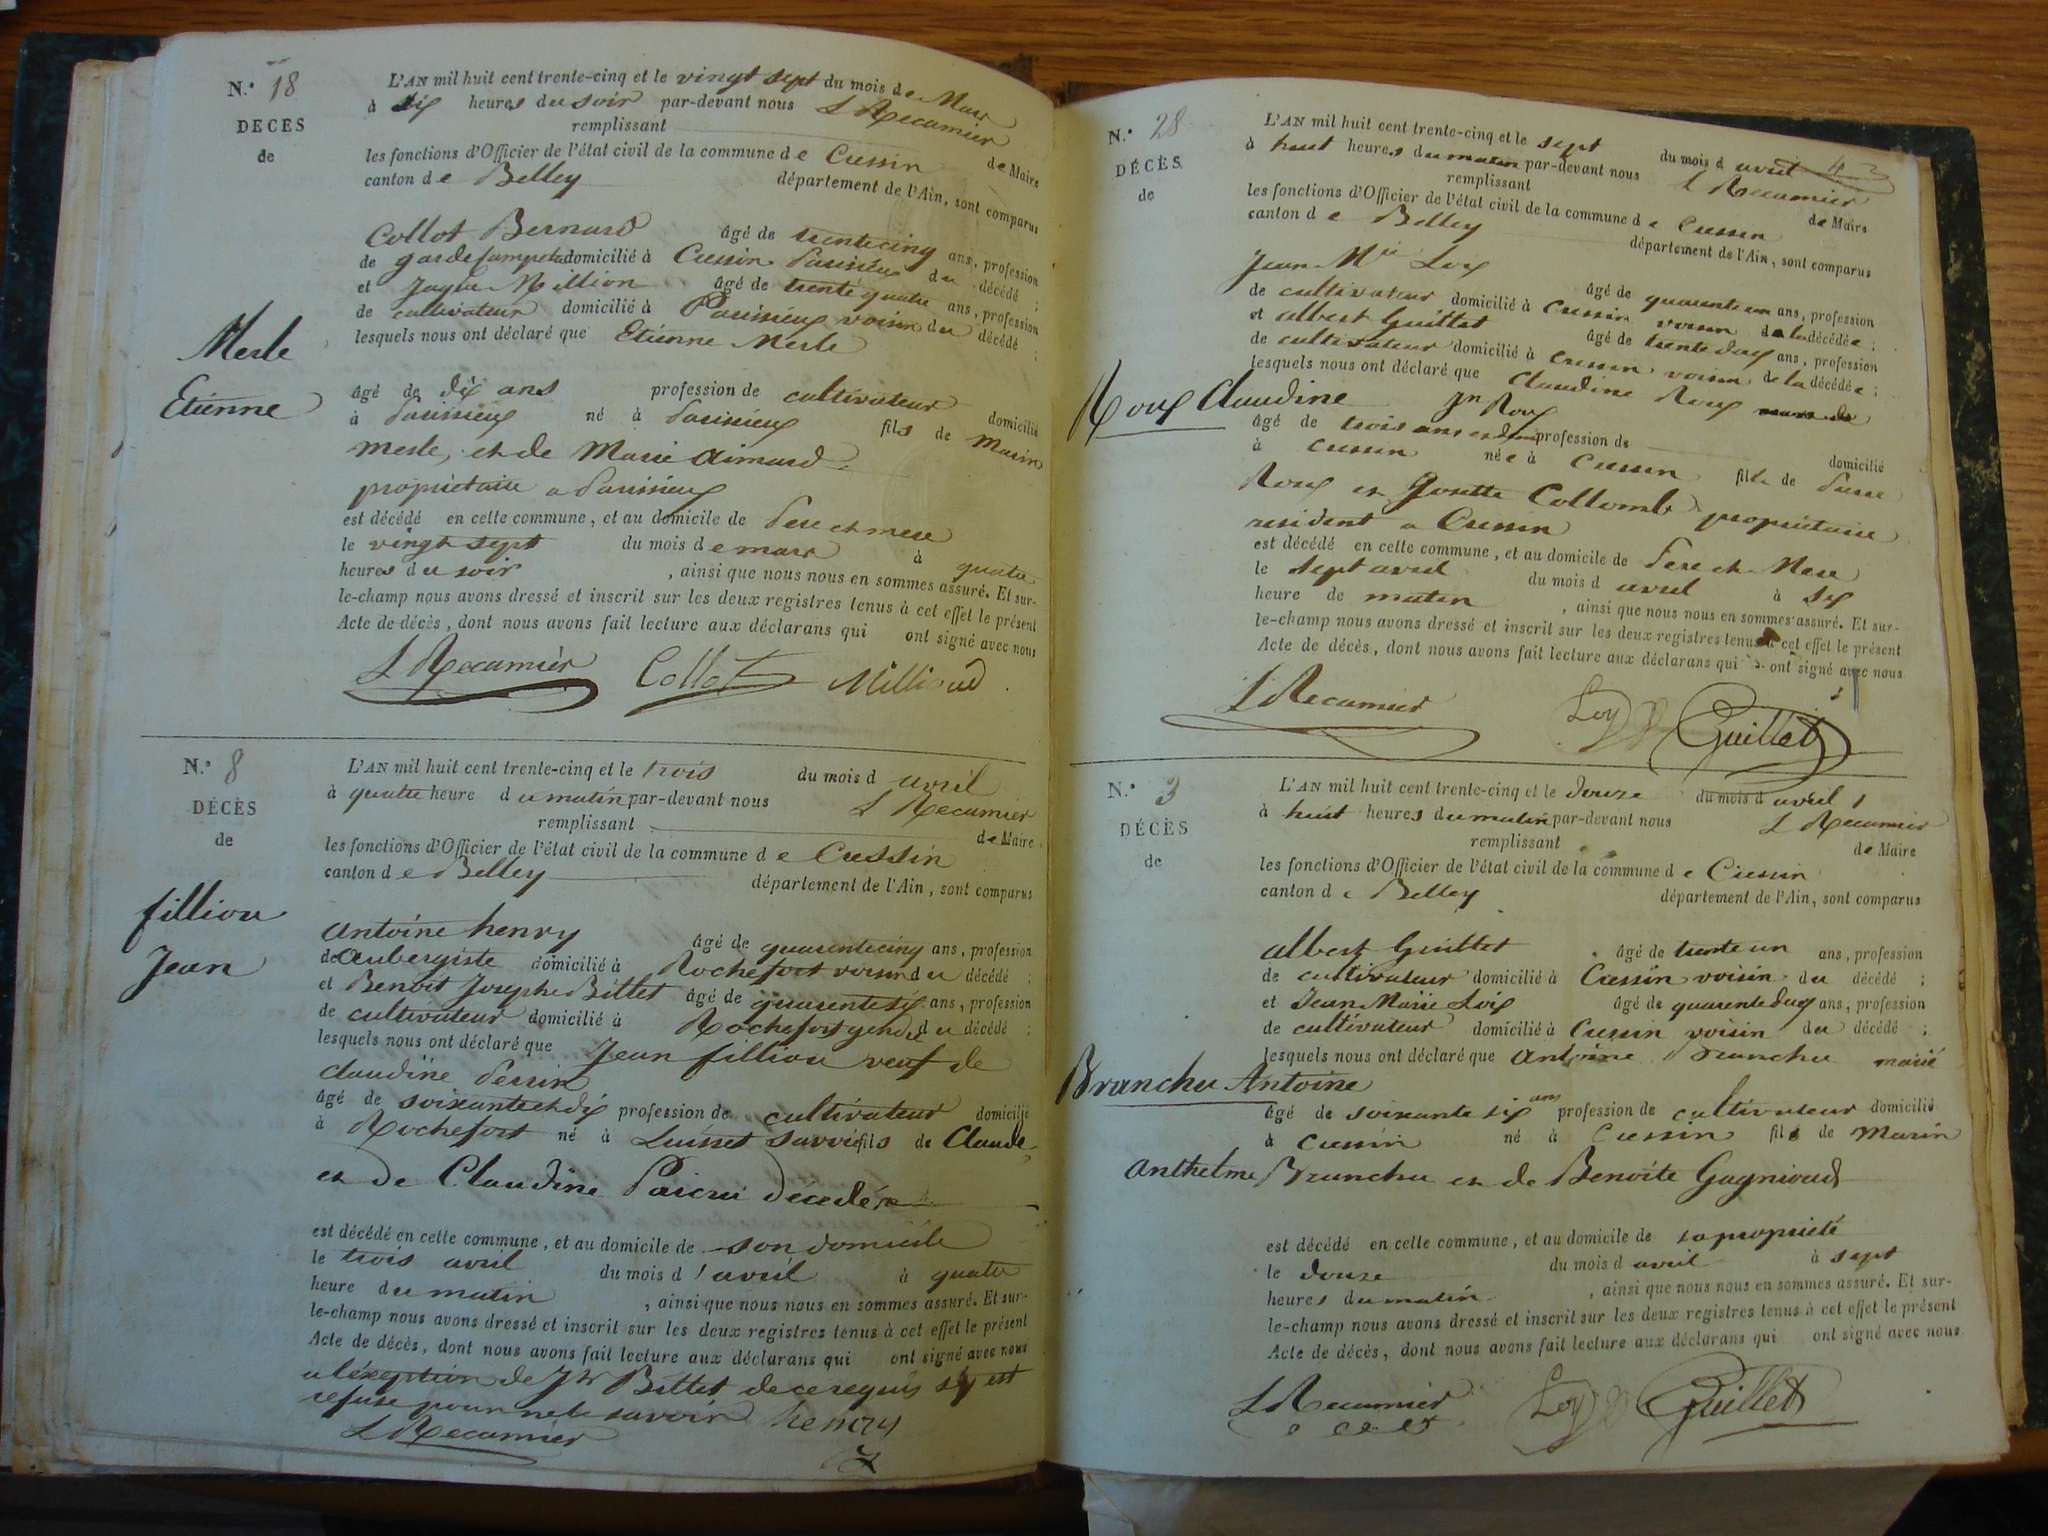 N.° 18
DECES
de
L'AN mil huit cent trente-cinq et le vingt sept du mois de Mars
à six heures du soir par-devant nous L Recamier
remplissant
les fonctions d'Officier de l'état civil de la commune de Cressin de Maire
canton de Belley département de l'Ain, sont comparus
Collot Bernard âgé de trente cinq ans, profession
de garde champetre domicilié à Cressin Parissieux du décédé ;
et Million âgé de trente quatre ans, profession
de cultivateur domicilié à Parissieux voisin du décédé ;
lesquels nous ont déclaré que Etienne Merle
Merle
Etienne
âgé de dix ans profession de cultivateur domicilié
à Parissieux né à Parissieux fils de Marin
Merle, et de Marie Aimard
propriétaire a Parissieux
est décédé en cette commune, et au domicile de Pere et mere
le vingt sept du mois de mars à quatre
heures du soir , ainsi que nous nous en sommes assuré. Et sur-
le-champ nous avons dressé et inscrit sur les deux registres tenus à cet effet le présent
Acte de décès, dont nous avons fait lecture aux déclarans qui ont signé avec nous
L Recamier Collot Millioud
N.° 8
DÉCÈS
de
L'AN mil huit cent trente-cinq et le trois du mois d avril
à quatre heure du matin par-devant nous L Recamier
remplissant de Maire
les fonctions d'Officier de l'état civil de la commune de Cressin
canton de Belley département de l'Ain, sont comparus
fillion
Jean
antoine henry âgé de quarente cinq ans, profession
de aubergiste domicilié à Rochefort voisin du décédé ;
et Benoit Josephe Billet âgé de quarente six ans, profession
de cultivateur domicilié à Rochefort gendre du décédé ;
lesquels nous ont déclaré que Jean fillion veuf de
Claudine Perrin
âgé de soixante et dix profession de cultivateur domicilié
à Rochefort né à Savoie fils de Claude
et de Claudine décédés
est décédé en cette commune, et au domicile de son domicile
le trois avril du mois d'avril à quatre
heure du matin , ainsi que nous nous en sommes assuré. Et sur-
le-champ nous avons dressé et inscrit sur les deux registres tenus à cet effet le présent
Acte de décès, dont nous avons fait lecture aux déclarans qui ont signé avec nous
a léxeption de Jh Billet de ce requis sy est
refuse pour ne le savoir henry
L Recamier
N.° 28
DÉCÈS
de
L'AN mil huit cent trente-cinq et le sept du mois d avril
à huit heures du matin par-devant nous L Recamier
remplissant de Maire
les fonctions d'Officier de l'état civil de la commune de Cressin
canton de Belley département de l'Ain, sont comparus
Jean Mie Loix âgé de quarente un ans, profession
de cultivateur domicilié à Cressin voisin de la décédée ;
et albert Guillet âgé de trente deux ans, profession
de cultivateur domicilié à Cressin voisin de la décédée ;
lesquels nous ont déclaré que Claudine Roux
Roux Claudine
jn Roux
âgé de trois ans et demi profession de domicilié
à Cressin née à Cressin fille de Pierre
Roux et Josette Collomb propriétaire
resident a Cressin
est décédé en cette commune, et au domicile de Pere et Mere
le sept avril du mois d avril à six
heure de matin , ainsi que nous nous en sommes assuré. Et sur-
le-champ nous avons dressé et inscrit sur les deux registres tenus à cet effet le présent
Acte de décès, dont nous avons fait lecture aux déclarans qui ont signé avec nous
L Recamier Loy Guillet
N.° 3
DÉCÈS
de
L'AN mil huit cent trente-cinq et le douze du mois d avril
à huit heures du matin par-devant nous L Recamier
remplissant de Maire
les fonctions d'Officier de l'état civil de la commune de Cressin
canton de Belley département de l'Ain, sont comparus
albert Guillet âgé de trente un ans, profession
de cultivateur domicilié à Cressin voisin du décédé ;
et Jean Marie Loix âgé de quarente deux ans, profession
de cultivateur domicilié à Cressin voisin du décédé ;
lesquels nous ont déclaré que antoine Branchu marié
Branchu Antoine
âgé de soixante six ans profession de cultivateur domicilié
à Cressin né à Cressin fils de Marin
anthelme Branchu et de Benoite Gagnioud
est décédé en cette commune, et au domicile de sa propriété
le douze du mois d avril à sept
heures du matin , ainsi que nous nous en sommes assuré. Et sur-
le-champ nous avons dressé et inscrit sur les deux registres tenus à cet effet le présent
Acte de décès, dont nous avons fait lecture aux déclarans qui ont signé avec nous
L Recamier Loy Guillet